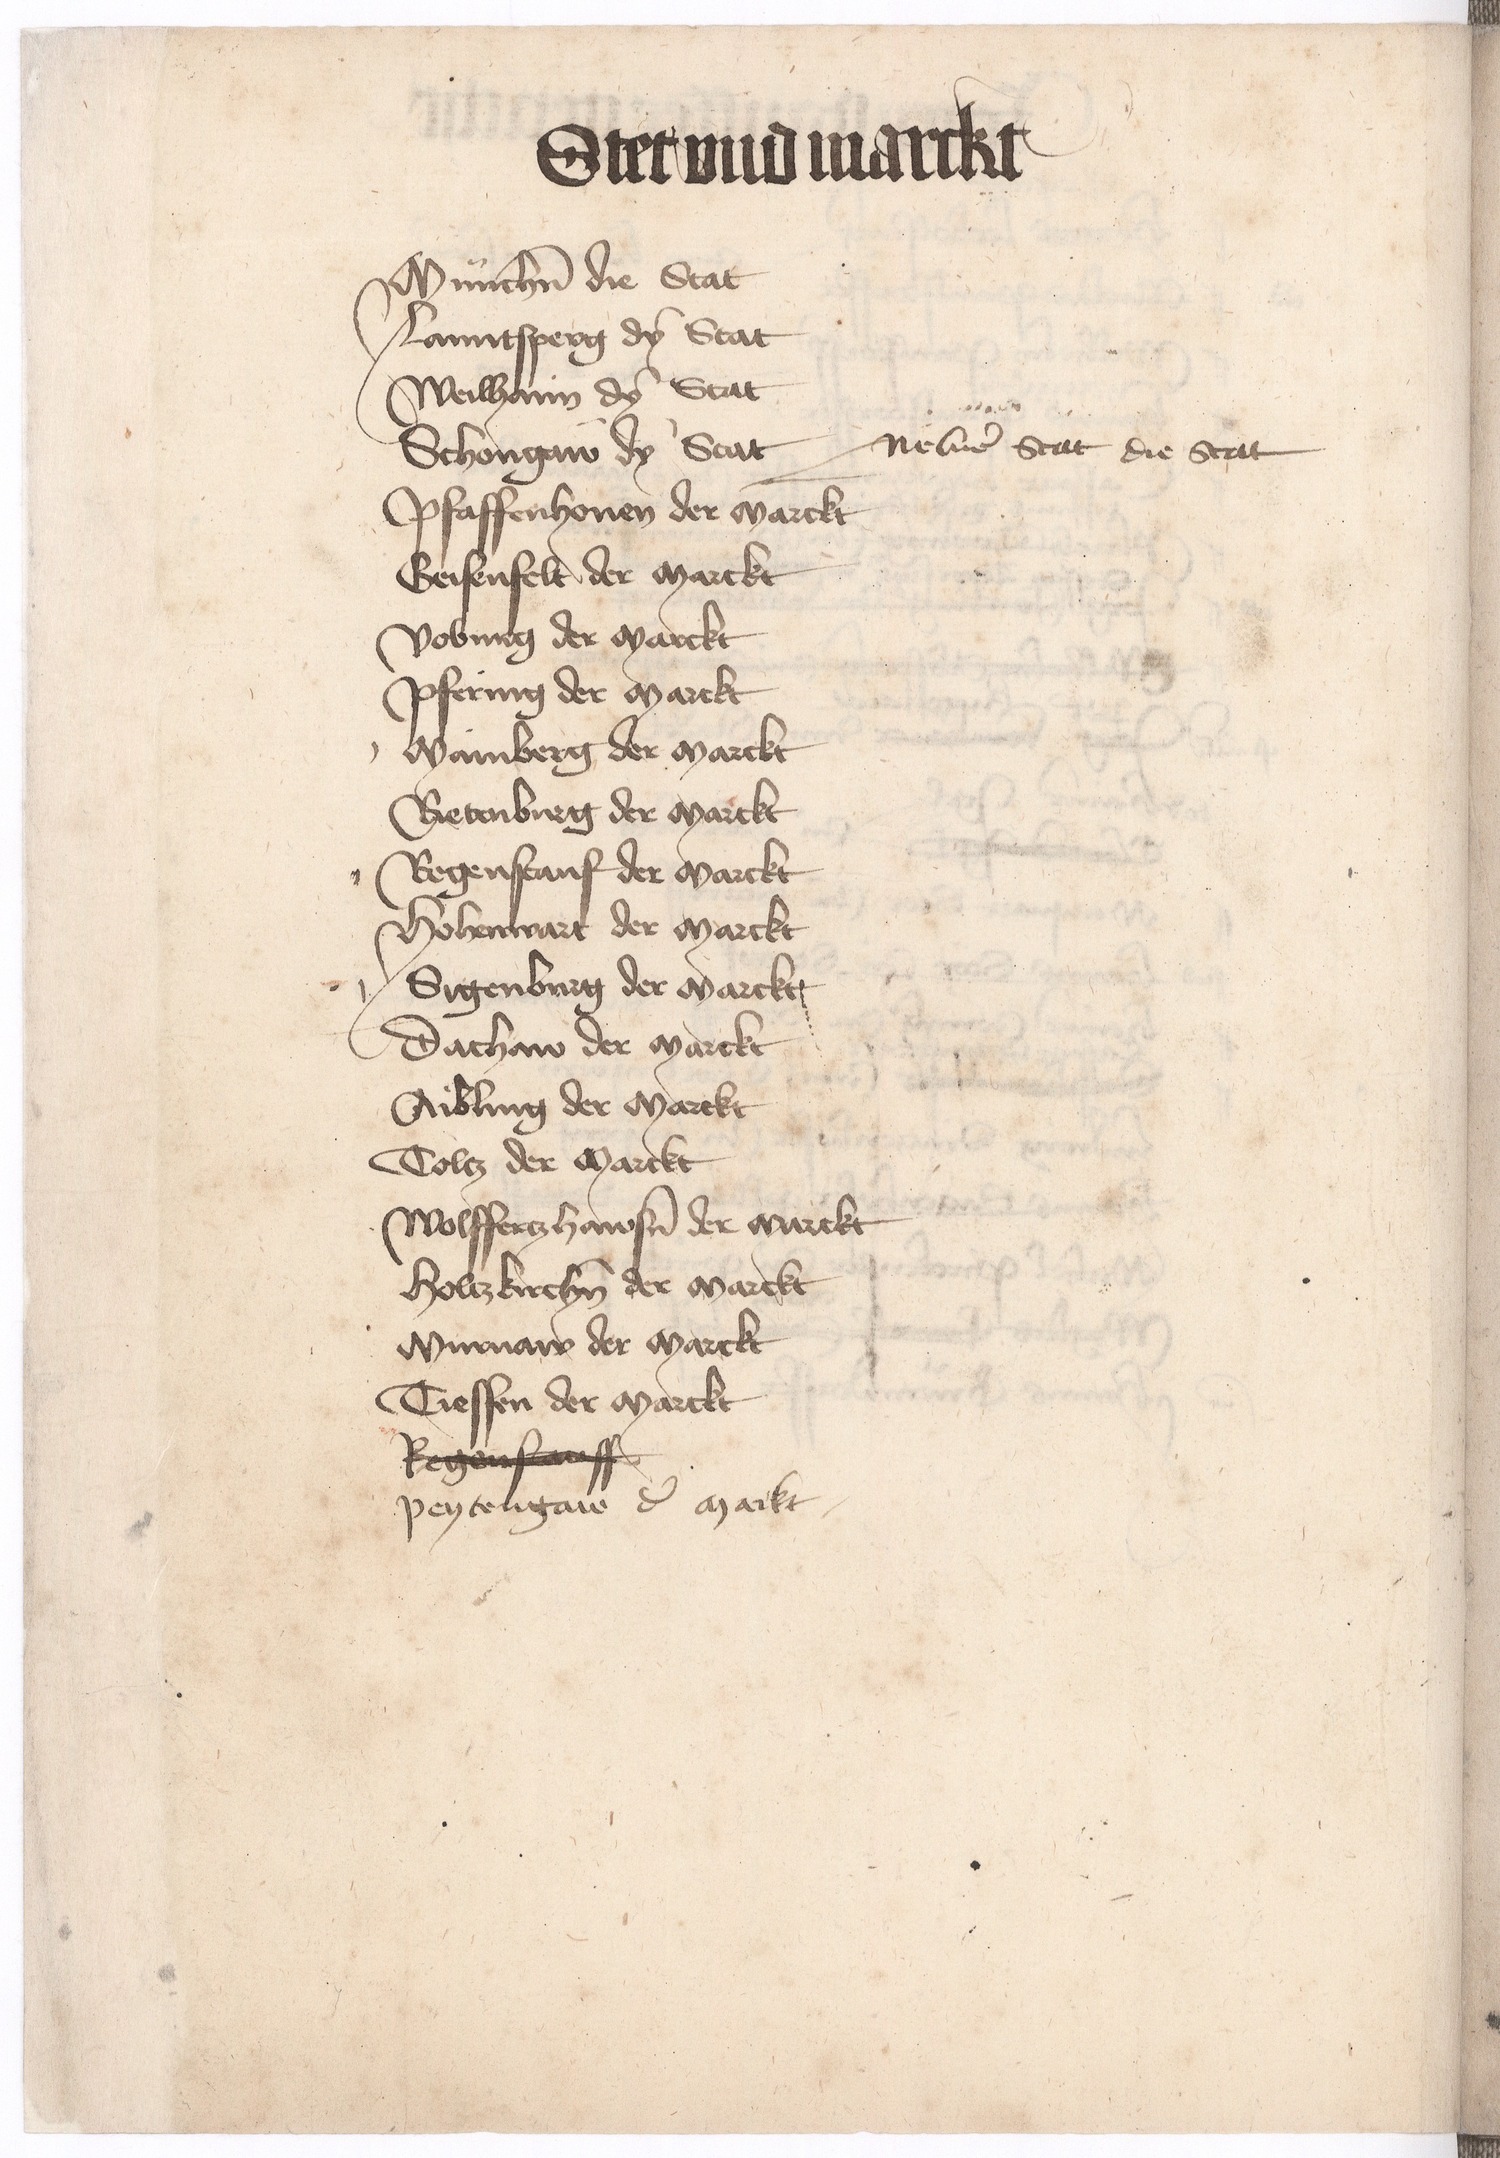 Stet vnd marckt
Münichn̄ die Stat
Lanntsperg dÿ Stat
Weilhaim dÿ Stat
Schongaw dy Stat Newe Stat die Stat
Pfaffenhouen der Marckt
Geisenfelt der Marckt
Voburg der Marckt
Pfering der Marckt
Mainberg der Marckt
Rietenburg der Marckt
Regenstauf der Marckt
Hohenwart der Marckt
Sigenburg der Marckt
Dachaw der Marckt
Aibling der Marckt
Toltz der Marckt
Wolffertzhawsn̄ der Marckt
Holtzkirchn̄ der Marckt
Murnaw der Marckt
Diessen der Marckt
Regenstauff
peytengaw d̄ Markt